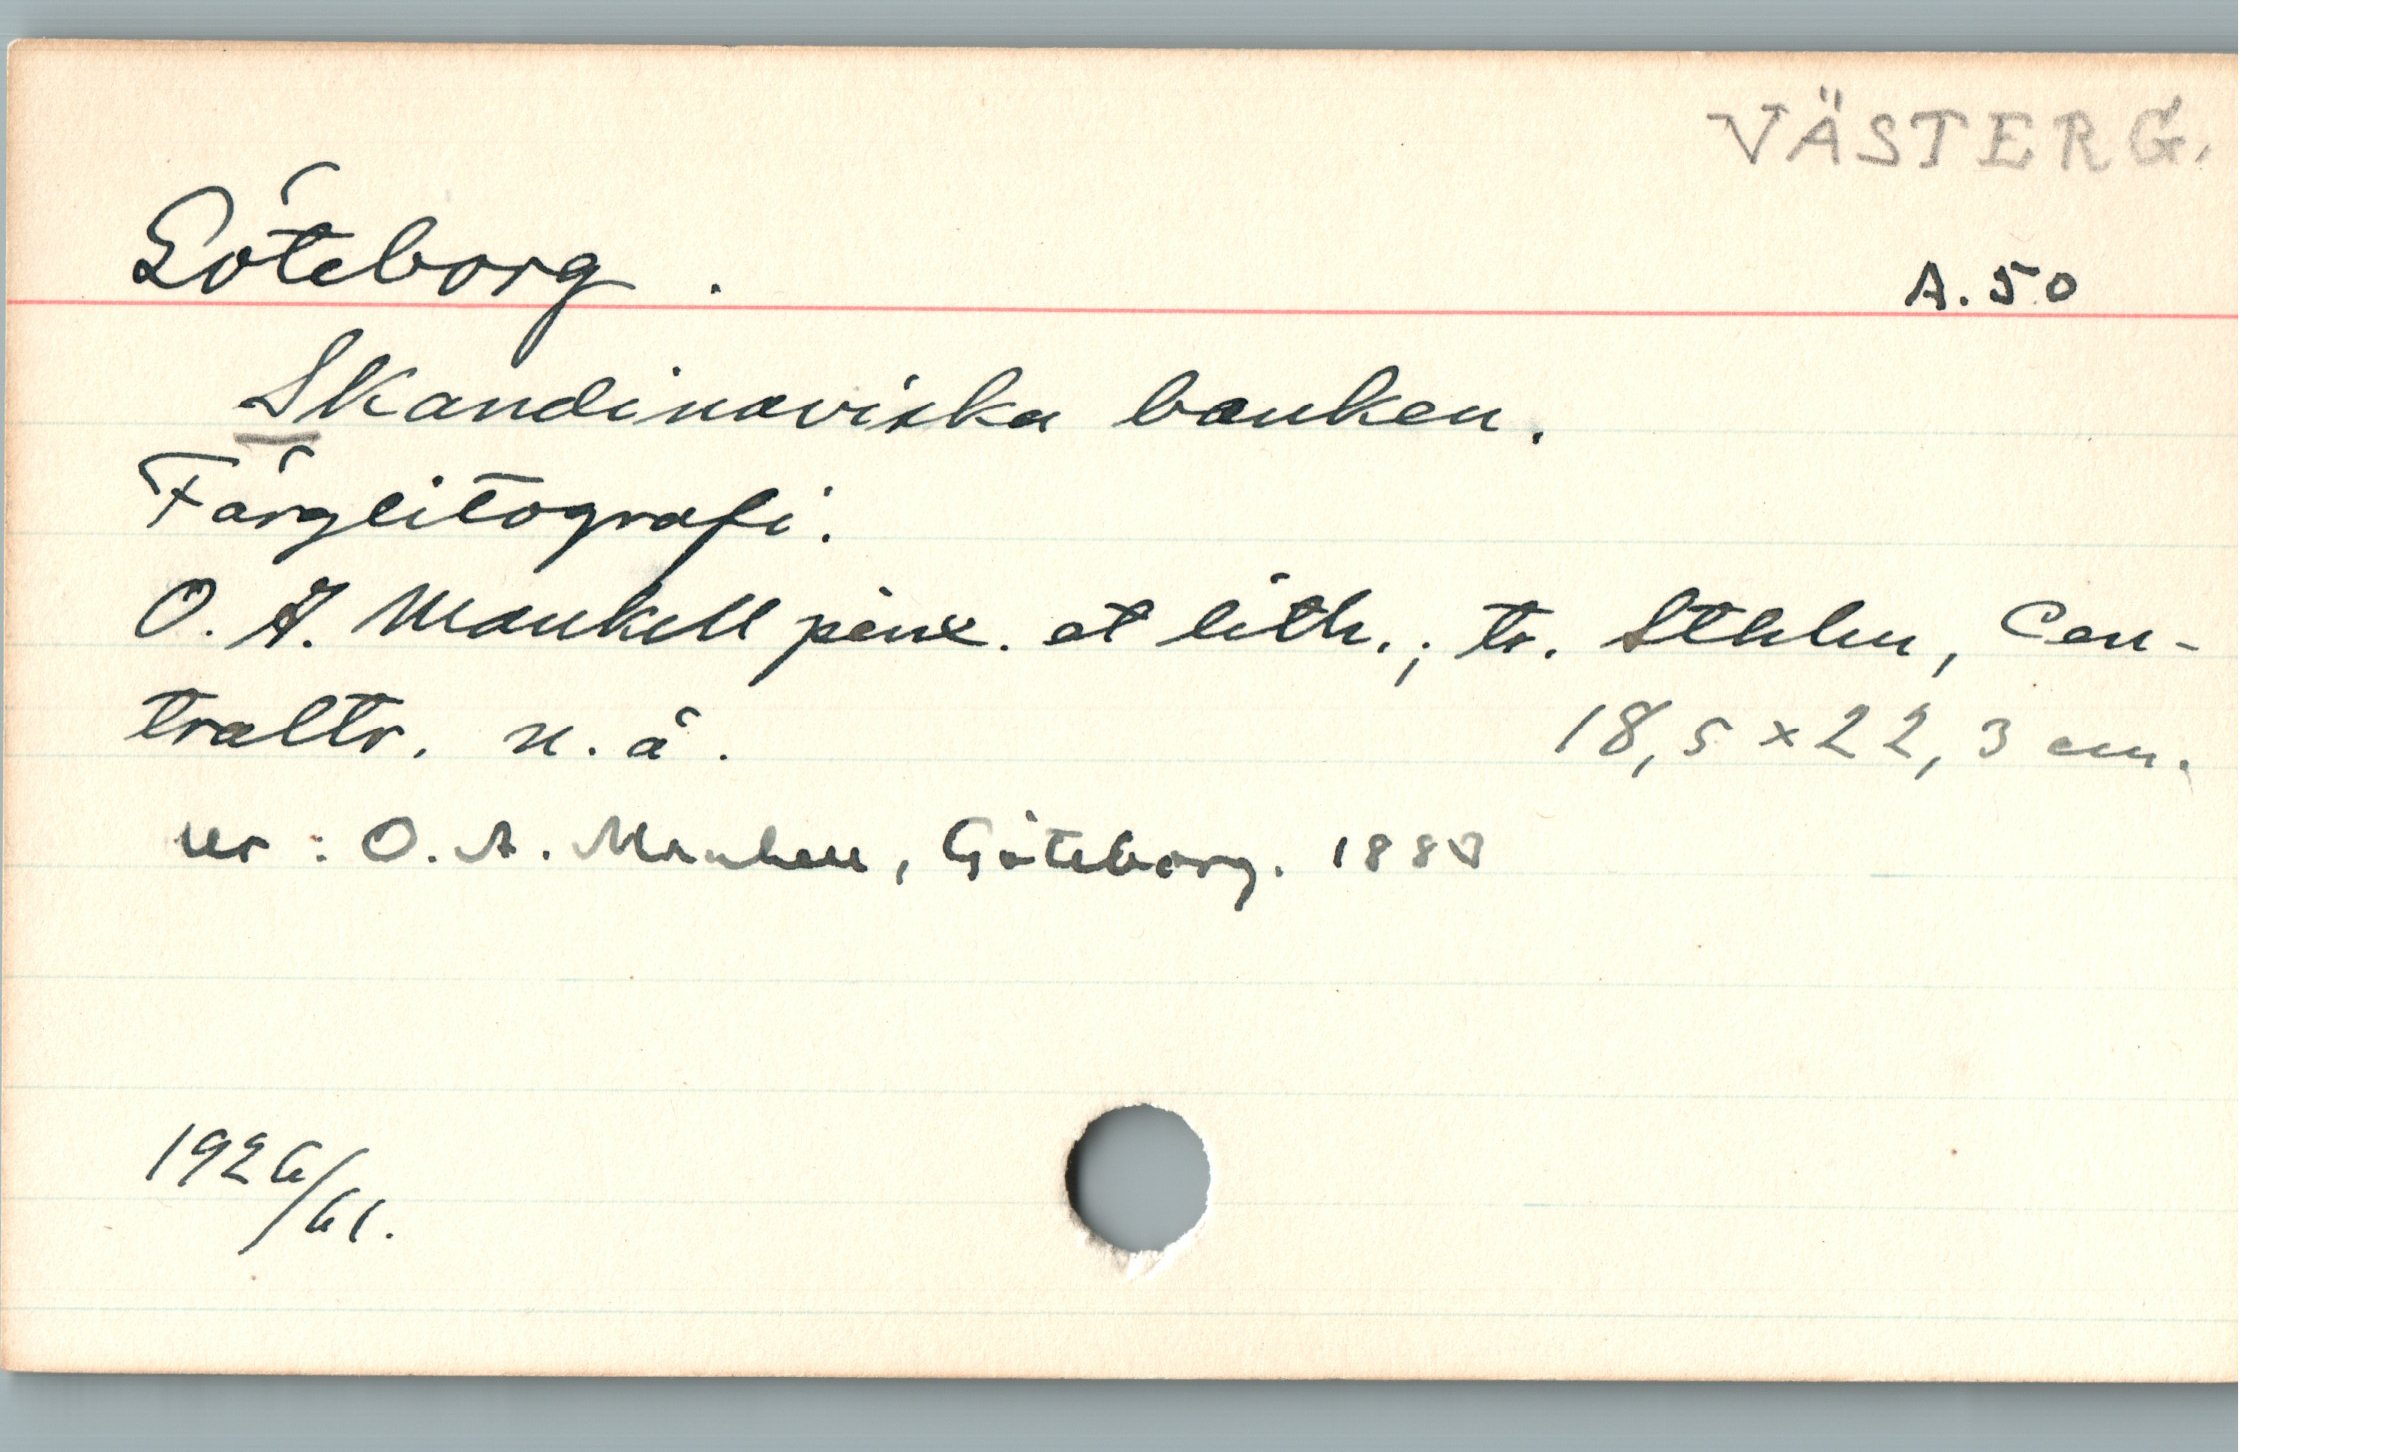 VÄSTERG.
Göteborg.
A.50
Skandinaviska banken.
Färglitografi.
O. A. Mankell pinx. et lith.; tr. Sthlm, Cen-
traltr. n. å.
18,5 × 22,3 cm.
ur: O. A. Mankell, Göteborg.
1926/61.